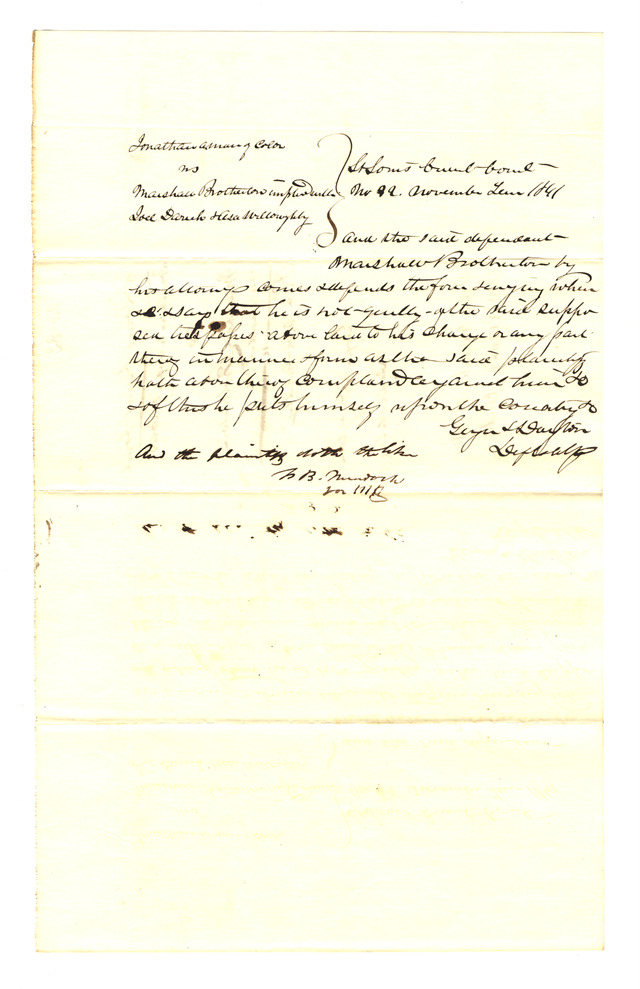 Jonathan a man of color
vs
Marshall Brotherton impld with
Joel Danah & Asa Willoughby
St Louis Circuit Court
No 92. November Term 1841
And the said defendant
Marshall Brotherton by
his attorneys comes & defends the force & injury when
&c & says that he is not guilty of the said suppo
sed trespasses above laid to his charge or any part
thereof in manner & form as the said plaintiff
hath above thereof complained against him &
& of this he puts himself upon the country &c
Geyer & Dayton
Defts attys
And the plaintiff doth the like
F B. Murdoch
for Plff